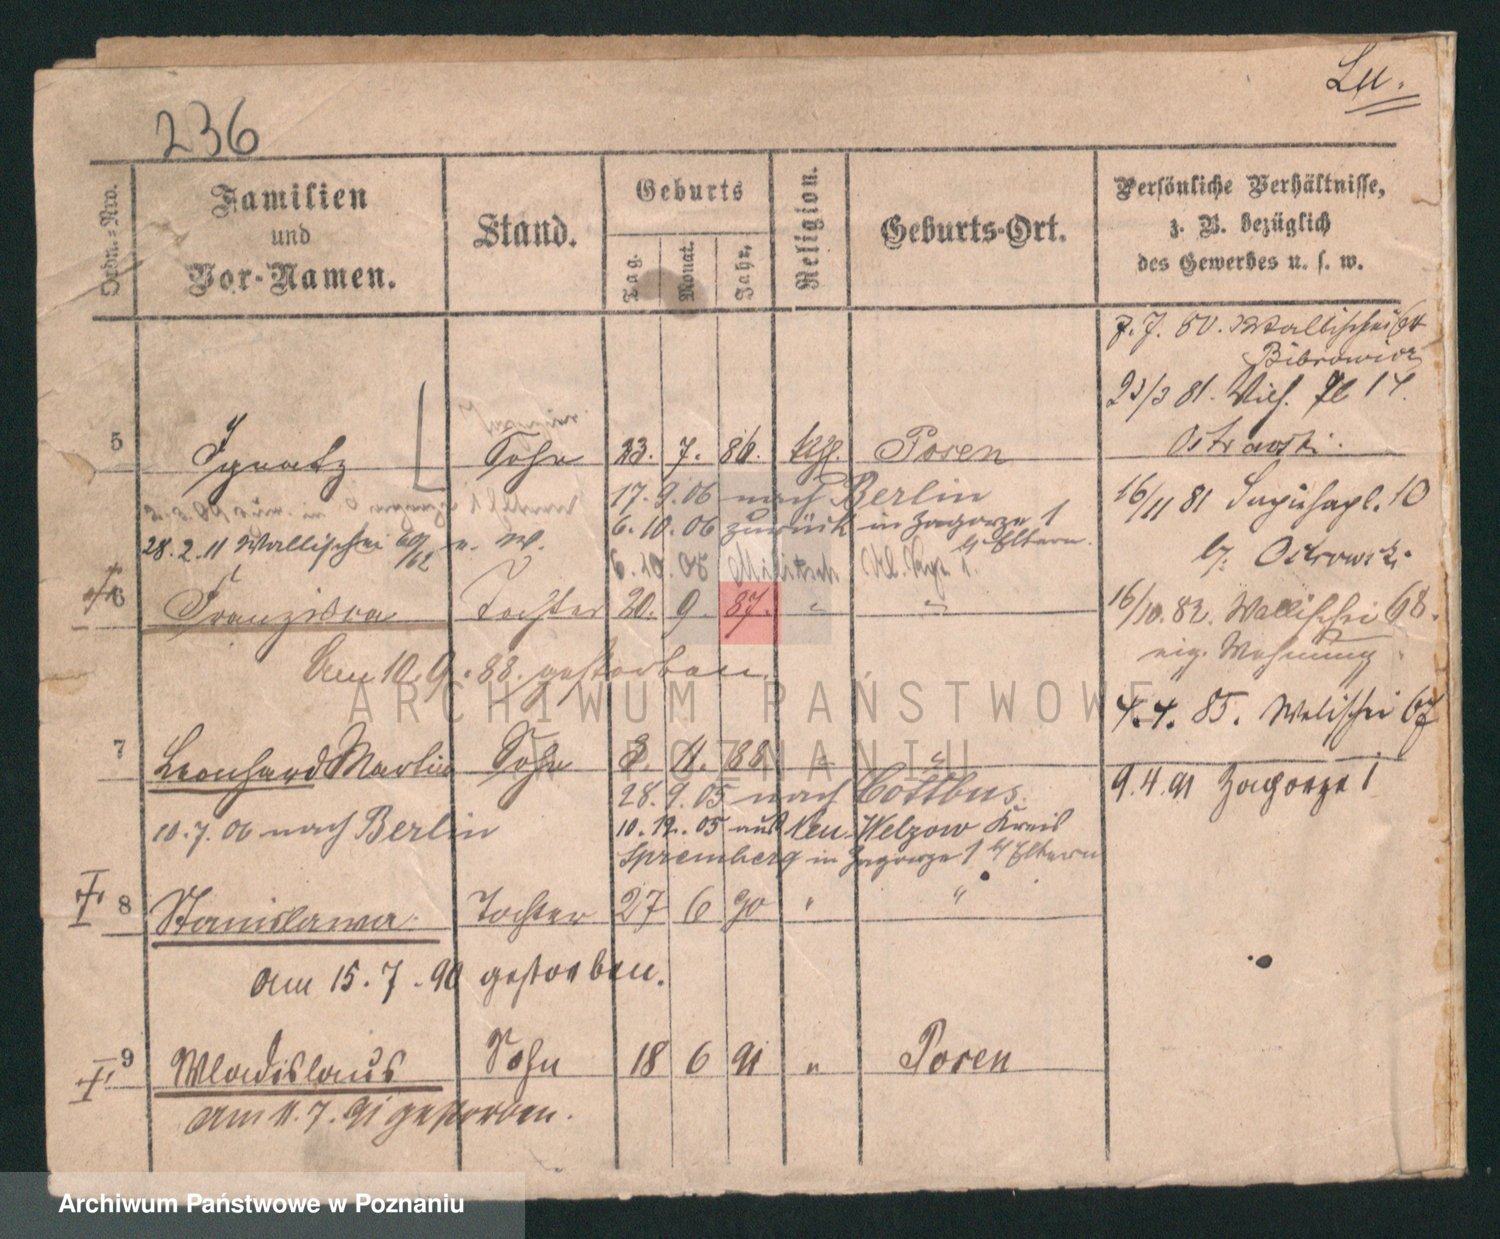 Lu.
236
Ordn.-Nro.
Familien
und
Vor-Namen.
Stand.
Geburts
Tag.
Monat.
Jahr.
Religion.
Geburts-Ort.
Persönliche Verhältnisse,
z. B. bezüglich
des Gewerbes u. s. w.
7. 7. 80. Wallischei
Bibrowicz
81. Wilh. Pl 17.
Ostrowski.
5 Ignatz Sohn 23. 7. 86. kath. Posen
17. 9. 06 nach Berlin
6. 10. 06 zurück in Zagorze 1
b/ Eltern.
28. 2. 11 Wallischei 60/62 u. W.
6. 10. 08 Militsch
16/11 81 Sapiehapl. 10
b/. Ostrowski
6 Franziska Tochter 20. 9. 87. " "
Am 10. 9. 88. gestorben.
16/10. 82. Wallischei 68.
eig. Wohnung
4. 4. 85. Walischei 67
7 Leonhard Martin Sohn 3. 11. 88 " "
28. 9. 05 nach Cottbus.
10. 12. 05 aus Neu Welzow Kreis
Spremberg in Zagorze 1 b/ Eltern
10. 7. 06 nach Berlin
9. 4. 91 Zagorze 1
8 Stanislawa. Tochter 27 6 90 " "
am 15. 7. 90 gestorben.
9 Wladislaus Sohn 18 6 91 " Posen
am 11. 7. 91 gestorben.
ARCHIWUM PAŃSTWOWE
POZNANIU
Archiwum Państwowe w Poznaniu